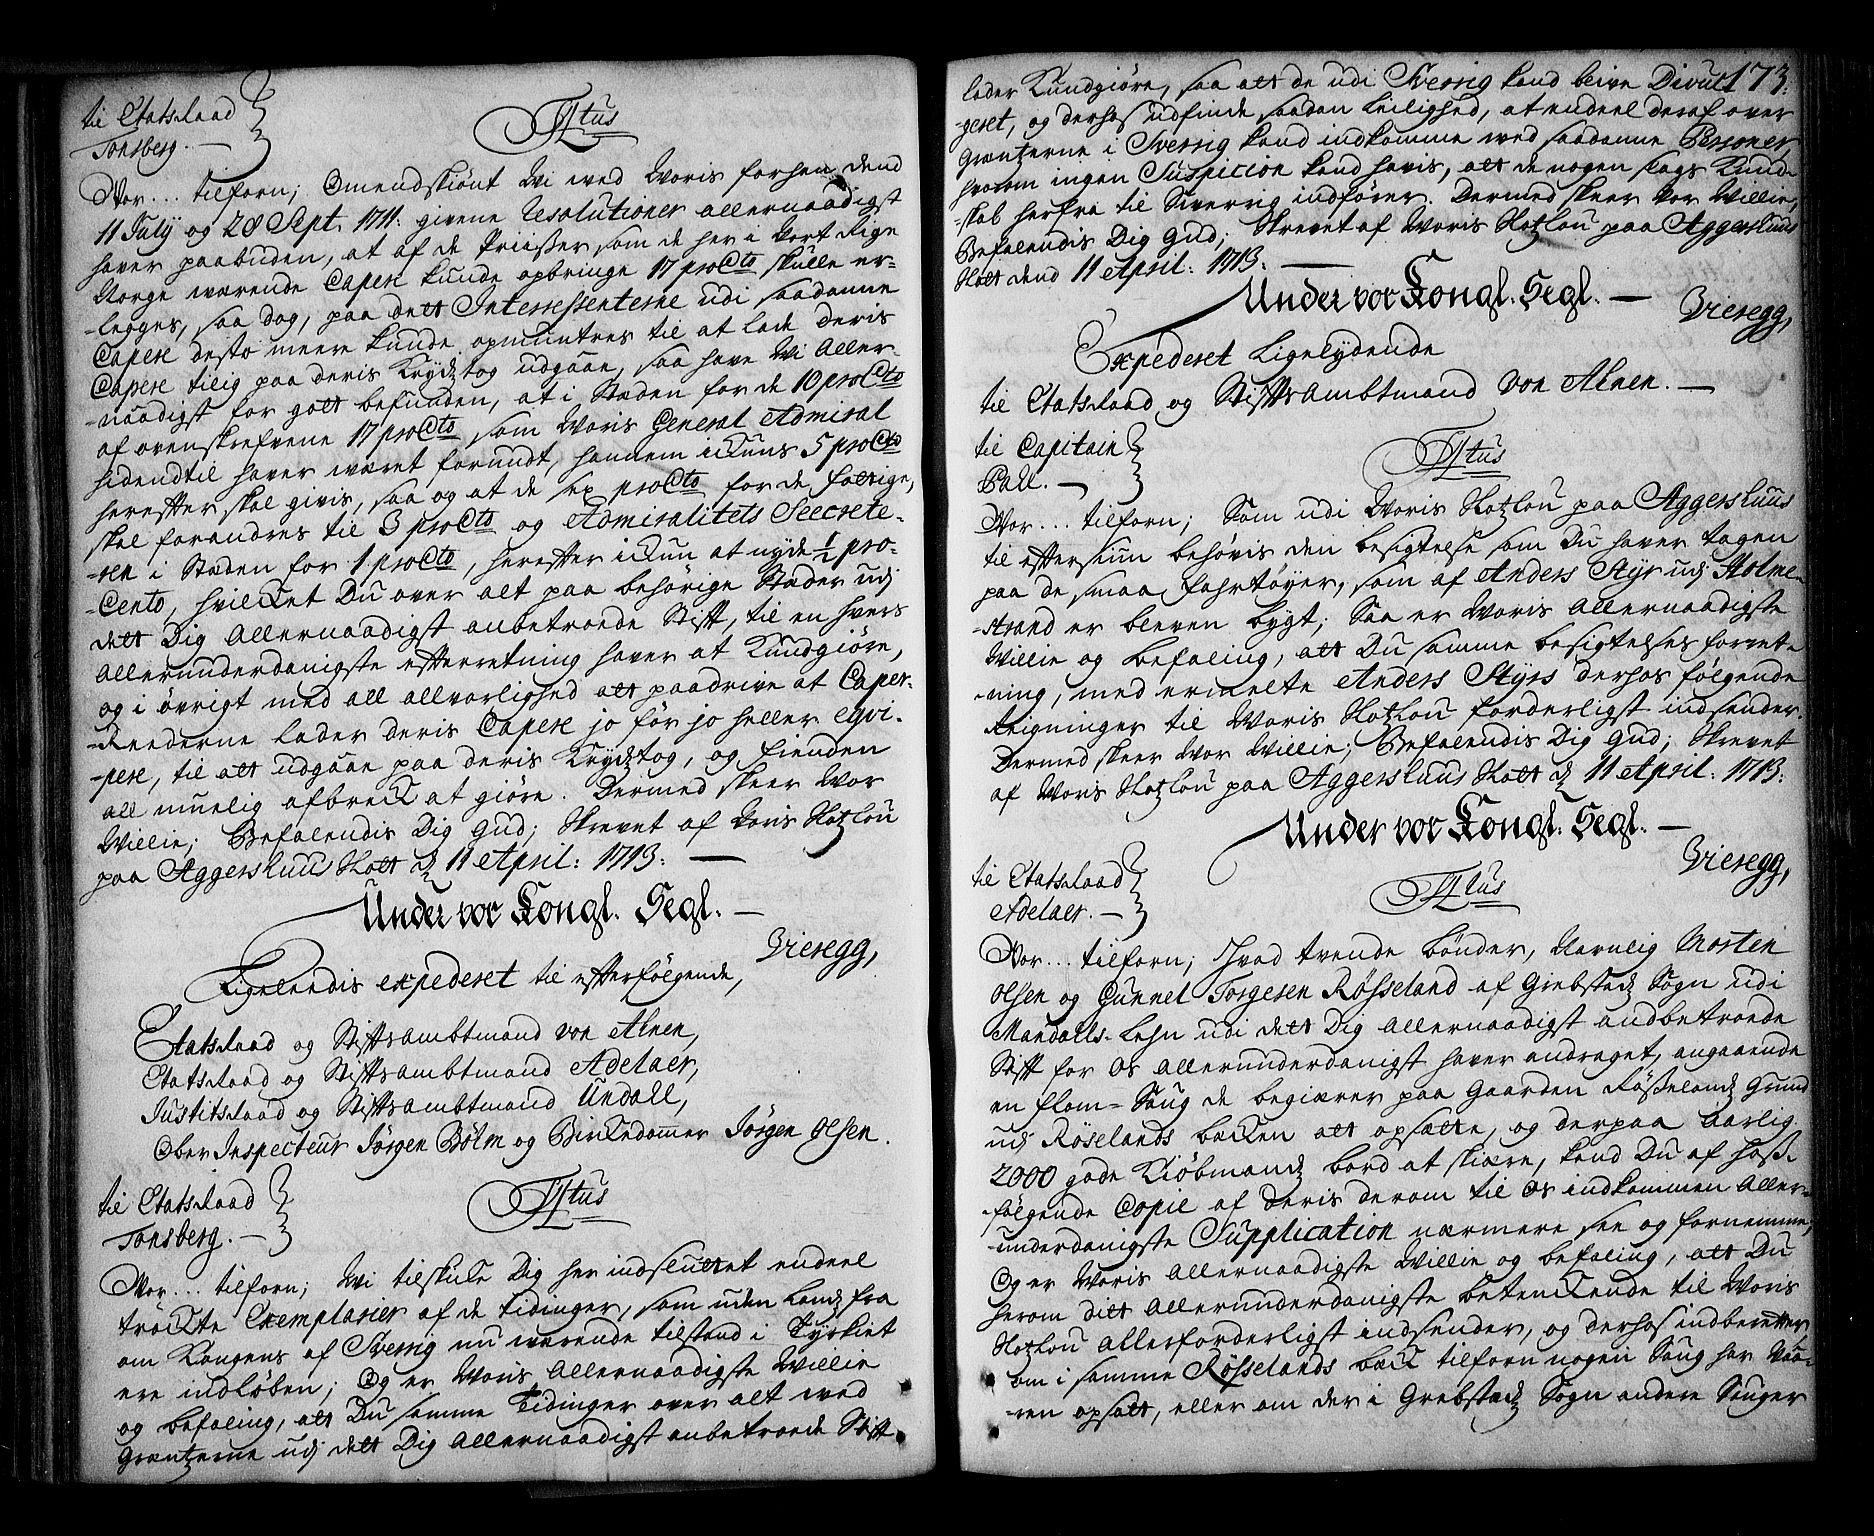 til Etatsraad
Tonsberg. —
FFtus
Vor... tilforn; Omendskiønt Wi med Voris forhen dend
11 July og 28 Sept. 1711. givene Resolutioner allernaadigst
haver paabuden, at af de Priißer som de her i Vort Rige
Norge værende Capere kunde opbringe 17 proCto skulle er-
-legges, saa dog, paa dett Interessenterne udi saadanne
Capere desto meere kunde opmuntres til at lade deris
Capere tilig paa deris Krydztog udgaae, saa have Wi Aller-
-naadigst for gott befunden, at i Stæden for de 10 proCto
af ovenskrefvene 17 proCto som Voris General Admiral
hidendtil haver været forundt, hannem ickuns 5 proCto
herefter skal givis, saa og at de sex proCto for de fattige,
skal forandres til 3 proCto og Admiralitets Secrete-
-ren i Stæden for 1 proCto, herefter ickun at nyde ½ pro-
-Cento, hvilcket Du over alt paa behørige Stæder udj
dett Dig Allernaadigst anbetroede Stift, til en hvers
Allerunderdanigste efterretning haver at Kundgiøre,
og i øvrigt med all allvorlighed att paadrive at Caper-
-Reederne lader deris Capere jo før jo heller eqvi-
-pere, til att udgaae paa deris Krydztog, og fienden
all muelig afbreck at giøre. Dermed skeer Vor
Willie; Befalendis Dig Gud; Skrevet af Voris Slotzlou
paa Aggershuus Slott d 11 April: 1713: —
Under vor Kongl. Segl. —
Vieregg,
Ligeleedis expederet til efterfølgende,
Etatsraad og Stiftsambtmand von Ahnen,
Etatsraad og Stiftsambtmand Adelaer,
Justitsraad og Stiftsambtmand Undall,
Ober Inspecteur Jørgen Bølm og Birkedommer Jørgen Olsen.
til Etatsraad
Tonsberg. —
FFtus
Vor... tilforn; Wi tilskicke Dig her indsluttet endeel
tröckte Exemplarier af de Tidinger, som uden Landz fra
om Kongens af Sverrig nu værende tilstand i Tyrkiet
ere indløben; Og er Voris Allernaadigste Willie
og befaling, att Du samme Tidinger over alt wed
Grentzerne udj dett Dig Allernaadigst anbetroede Stift
173.
lader Kundgiøre, saa att de udi Sverrig kand blive Divul-
-geret, og derhos udfinde saadan Leilighed, at endeel deraf over
Grentzerne i Sverrig kand indkomme med saadanne Personer
hvorom ingen Suspicion kand havis, att de nogen slags Kund-
-skab herfra til Swerrig indfører. Dermed skeer Vor Willie,
Befalendis Dig Gud; Skrevet af Voris Slotzlou paa Aggershuus
Slott dend 11 April: 1713. —
Under vor Kongl. Segl. —
Vieregg,
Expederet Ligelydende
til Etatsraad og Stiftsambtmand von Ahnen. —
til Capitain
Pall. —
FFtus
Vor... tilforn; Som udi Voris Slotzlou paa Aggershuus
til eftersiun behøvis den besigtelse som Du haver tagen
paa de smaa Fahrtøyer, som af Anders Styr udj Holme-
-strand er bleven bygt; Saa er Voris Allernaadigste
Willie og befaling, att Du samme besigtelses forret-
-ning, med ermelte Anders Styrs derhos følgende
Reigninger til Voris Slotzlou forderligst indsender.
Dermed skeer Vor Willie; Befalendis Dig Gud; Skrevet
af Voris Slotzlou paa Aggershuus Slott d 11 April: 1713:
Under vor Kongl. Segl. —
Vieregg,
til Etatsraad
Adelaer. —
FFtus
Vor... tilforn; Hvad tvende bönder, Navnlig Morten
Olsen og Gunnel Torgersen Røsseland af Grebstadz Sogn udi
Mandalls-Lehn udi dett Dig Allernaadigst andbetroede
Stift for Os Allerunderdanigst haver andraget, angaaende
en flom-Saug de begiærer paa Gaarden Røßelandz Grund
udj Røselands backen att opsætte, og derpaa aarlig
2000 gode Kiøbmandz bord at skiære, kand Du af hoß-
-følgende Copie af deris derom til Os indkommen Aller-
-underdanigste Supplication nærmere see og fornemme;
Og er Voris Allernaadigste Willie og befaling, att Du
herom ditt Allerunderdanigste betenckende til Voris
Slotzlou Allerforderligst indsender, og derhos indberetter
om i samme Røsselands back tilforn nogen Saug har væ-
-ren opsatt, eller om der i Grebstadz Sogn andere Sauger